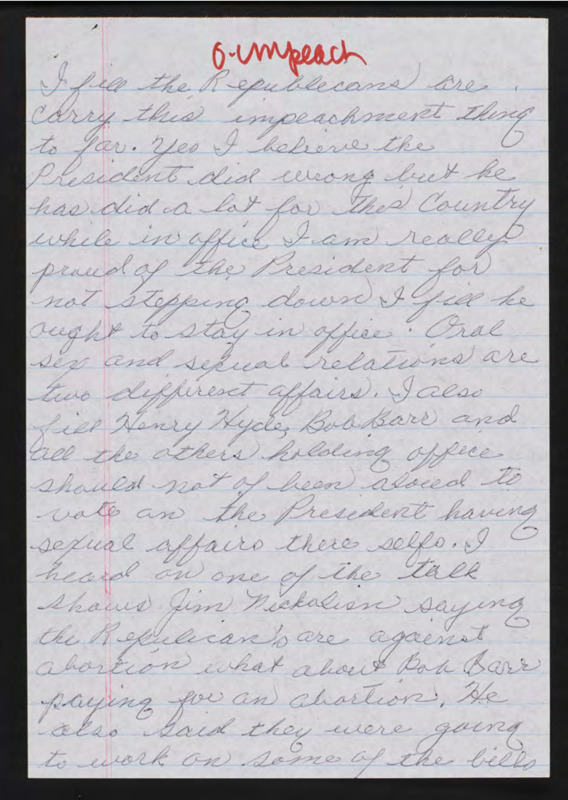 o-impeach
I fill the Republicans are
carry this impeachment thing
to far. Yes I believe the
President did wrong but he
has did a lot for this Country
while in office I am really
proud of the President for
not stepping down I fill he
ought to stay in office. Oral
sex and sexual relations are
two different affairs. I also
fill Henry Hyde, Bob Barr and
all the others holding office
should not of been aloued to
vote on the President having
sexual affairs there selfs. I
heard on one of the talk
shows Jim saying
the Republican's are against
abortion what about Bob Barr
paying for an abortion. He
also said they were going
to work on some of the bills